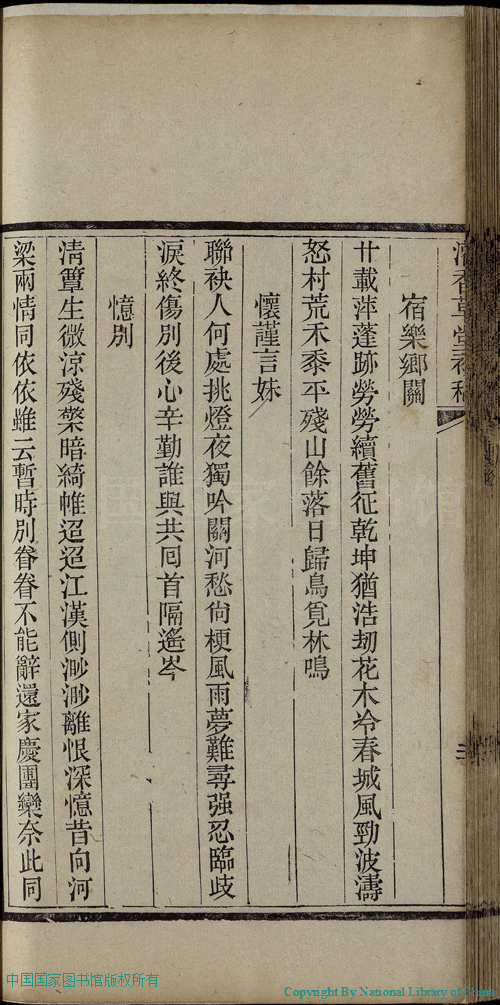 宿樂鄉關
廿載萍蓬跡勞勞續舊征乾坤猶浩刧花木冷春城風勁波濤
怒村荒禾黍平殘山餘落日歸鳥覓林鳴
懷謹言妹
聯袂人何處挑燈夜獨吟關河愁尙梗風雨夢難尋强忍臨歧
淚終傷別後心辛勤誰與共囘首隔遙岑
憶別
清簟生微涼殘檠暗綺帷迢迢江漢側渺渺離恨深憶昔向河
梁兩情同依依雖云暫時別眷眷不能辭還家慶團欒奈此同
中国国家图书馆版权所有
Copyright By National Library of China